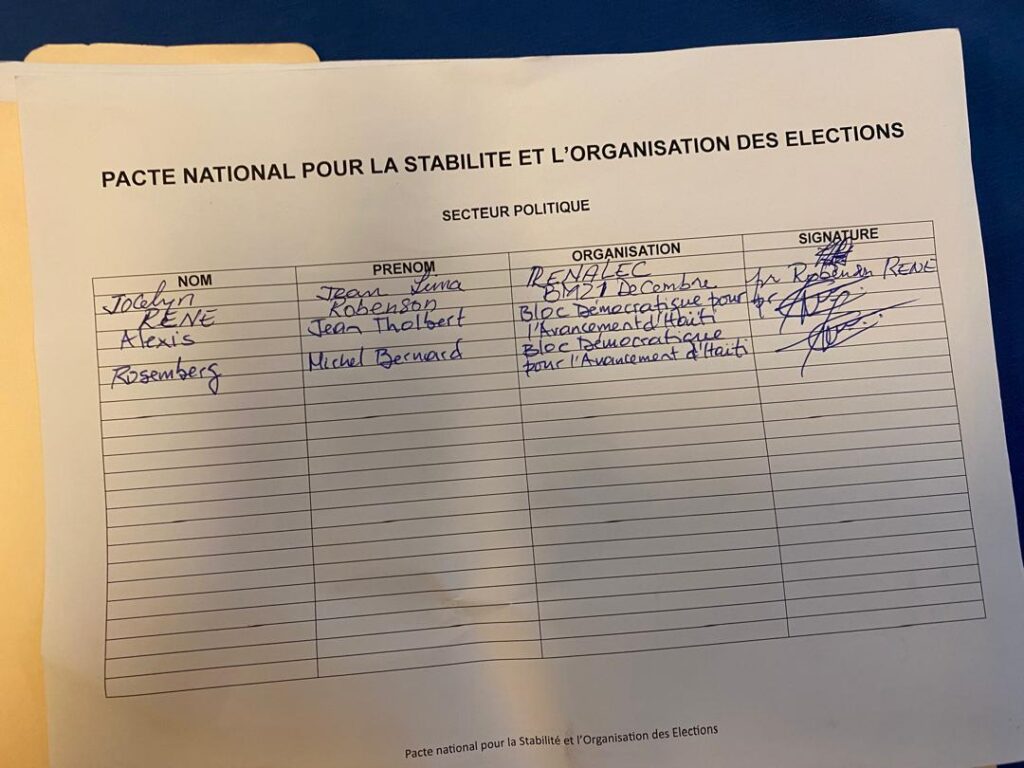 PACTE NATIONAL POUR LA STABILITE ET L'ORGANISATION DES ELECTIONS
SECTEUR POLITIQUE
NOM PRENOM ORGANISATION SIGNATURE
Jocelyn Jean Lima RENALEC
RENE Robenson BM21 Decembre pr Robenson RENE
Alexis Jean Tholbert Bloc Démocratique pour l'Avancement d'Haïti pr
Rosemberg Michel Bernard Bloc Démocratique pour l'Avancement d'Haïti
Pacte national pour la Stabilité et l'Organisation des Elections